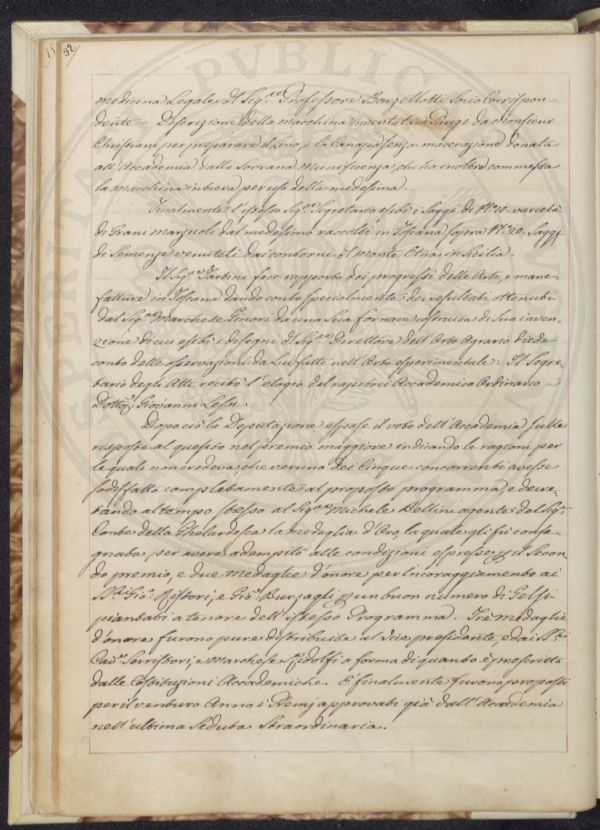 18 32
medicina Legale del Sig.re Professore Barzellotti Socio Corrispon-
dente. Descrizione della macchina inventata in Parigi da Monsieur
Christian per preparare il Lino, e la Canapa senza macerazione donata
all'Accademia dalla Sovrana Munificenza, che ha inoltre commessa
la macchina intiera per uso della medesima.
Finalmente l'istesso Sig.re Segretario esibì i Saggi di N.° 10. varietà
di Grani marzuoli dal medesimo raccolti in Toscana sopra N.° 20. Saggi
di Semenze venutili dai contorni di monte Etna in Sicilia.
Il Sig.re Tartini fece rapporto dei progressi delle Arti, e mani-
fatture in Toscana dando conto specialmente dei resultati ottenuti
dal Sig.re Marchese Ginori da una Sua fornace costruita di Sua inven-
zione di cui esibì i disegni. Il Sig.re Direttore dell'Orto Agrario diede
conto delle osservazioni da Lui fatte nell'Orto esperimentale. Il Segre-
tario degli Atti recitò l'elogio del rapitoci Accademico Ordinario
Dottor Giovanni Lessi.
Dopo ciò la Deputazione espose il voto dell'Accademia sulle
risposte al quesito nel premio maggiore indicando le ragioni per
le quali non credeva, che veruno dei Cinque concorrenti avesse
sodisfatto completamente al proposto programma, e decre-
tando al tempo stesso al Sig.re Michele Bellini agente del Sig.r
Conte della Gherardesca la medaglia d'Oro, la quale gli fù conse-
gnata per avere adempito alle condizioni espresse per il Secon-
do premio, e due medaglie d'onore per incoraggiamento ai
SS.ri Gio. Ristori, e Gio. Burzagli per un buon numero di Gelsi
piantati a tenore dell'istesso Programma. Trè medaglie
d'onore furono pure distribuite al Vice presidente, e dai SS.ri
Cav. Serristori, e Marchese Ridolfi a forma di quanto è prescritto
dalle Costituzioni Accademiche. E finalmente furono proposti
per il venturo Anno i Premj approvati già dall'Accademia
nell'ultima Seduta Straordinaria.